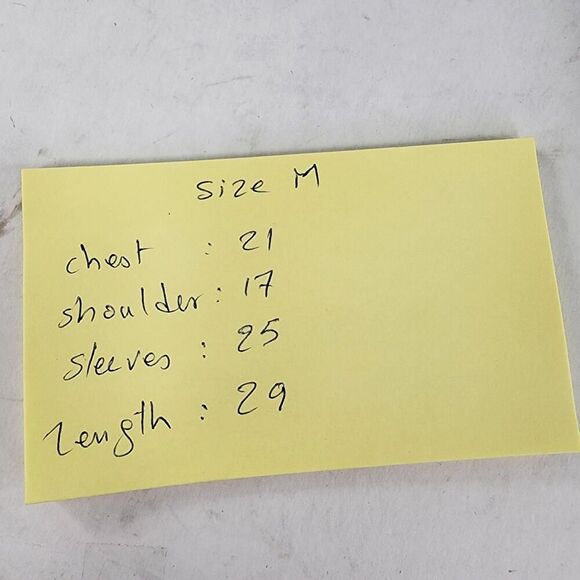 size M
chest : 21
shoulder : 17
sleeves : 25
Length : 29